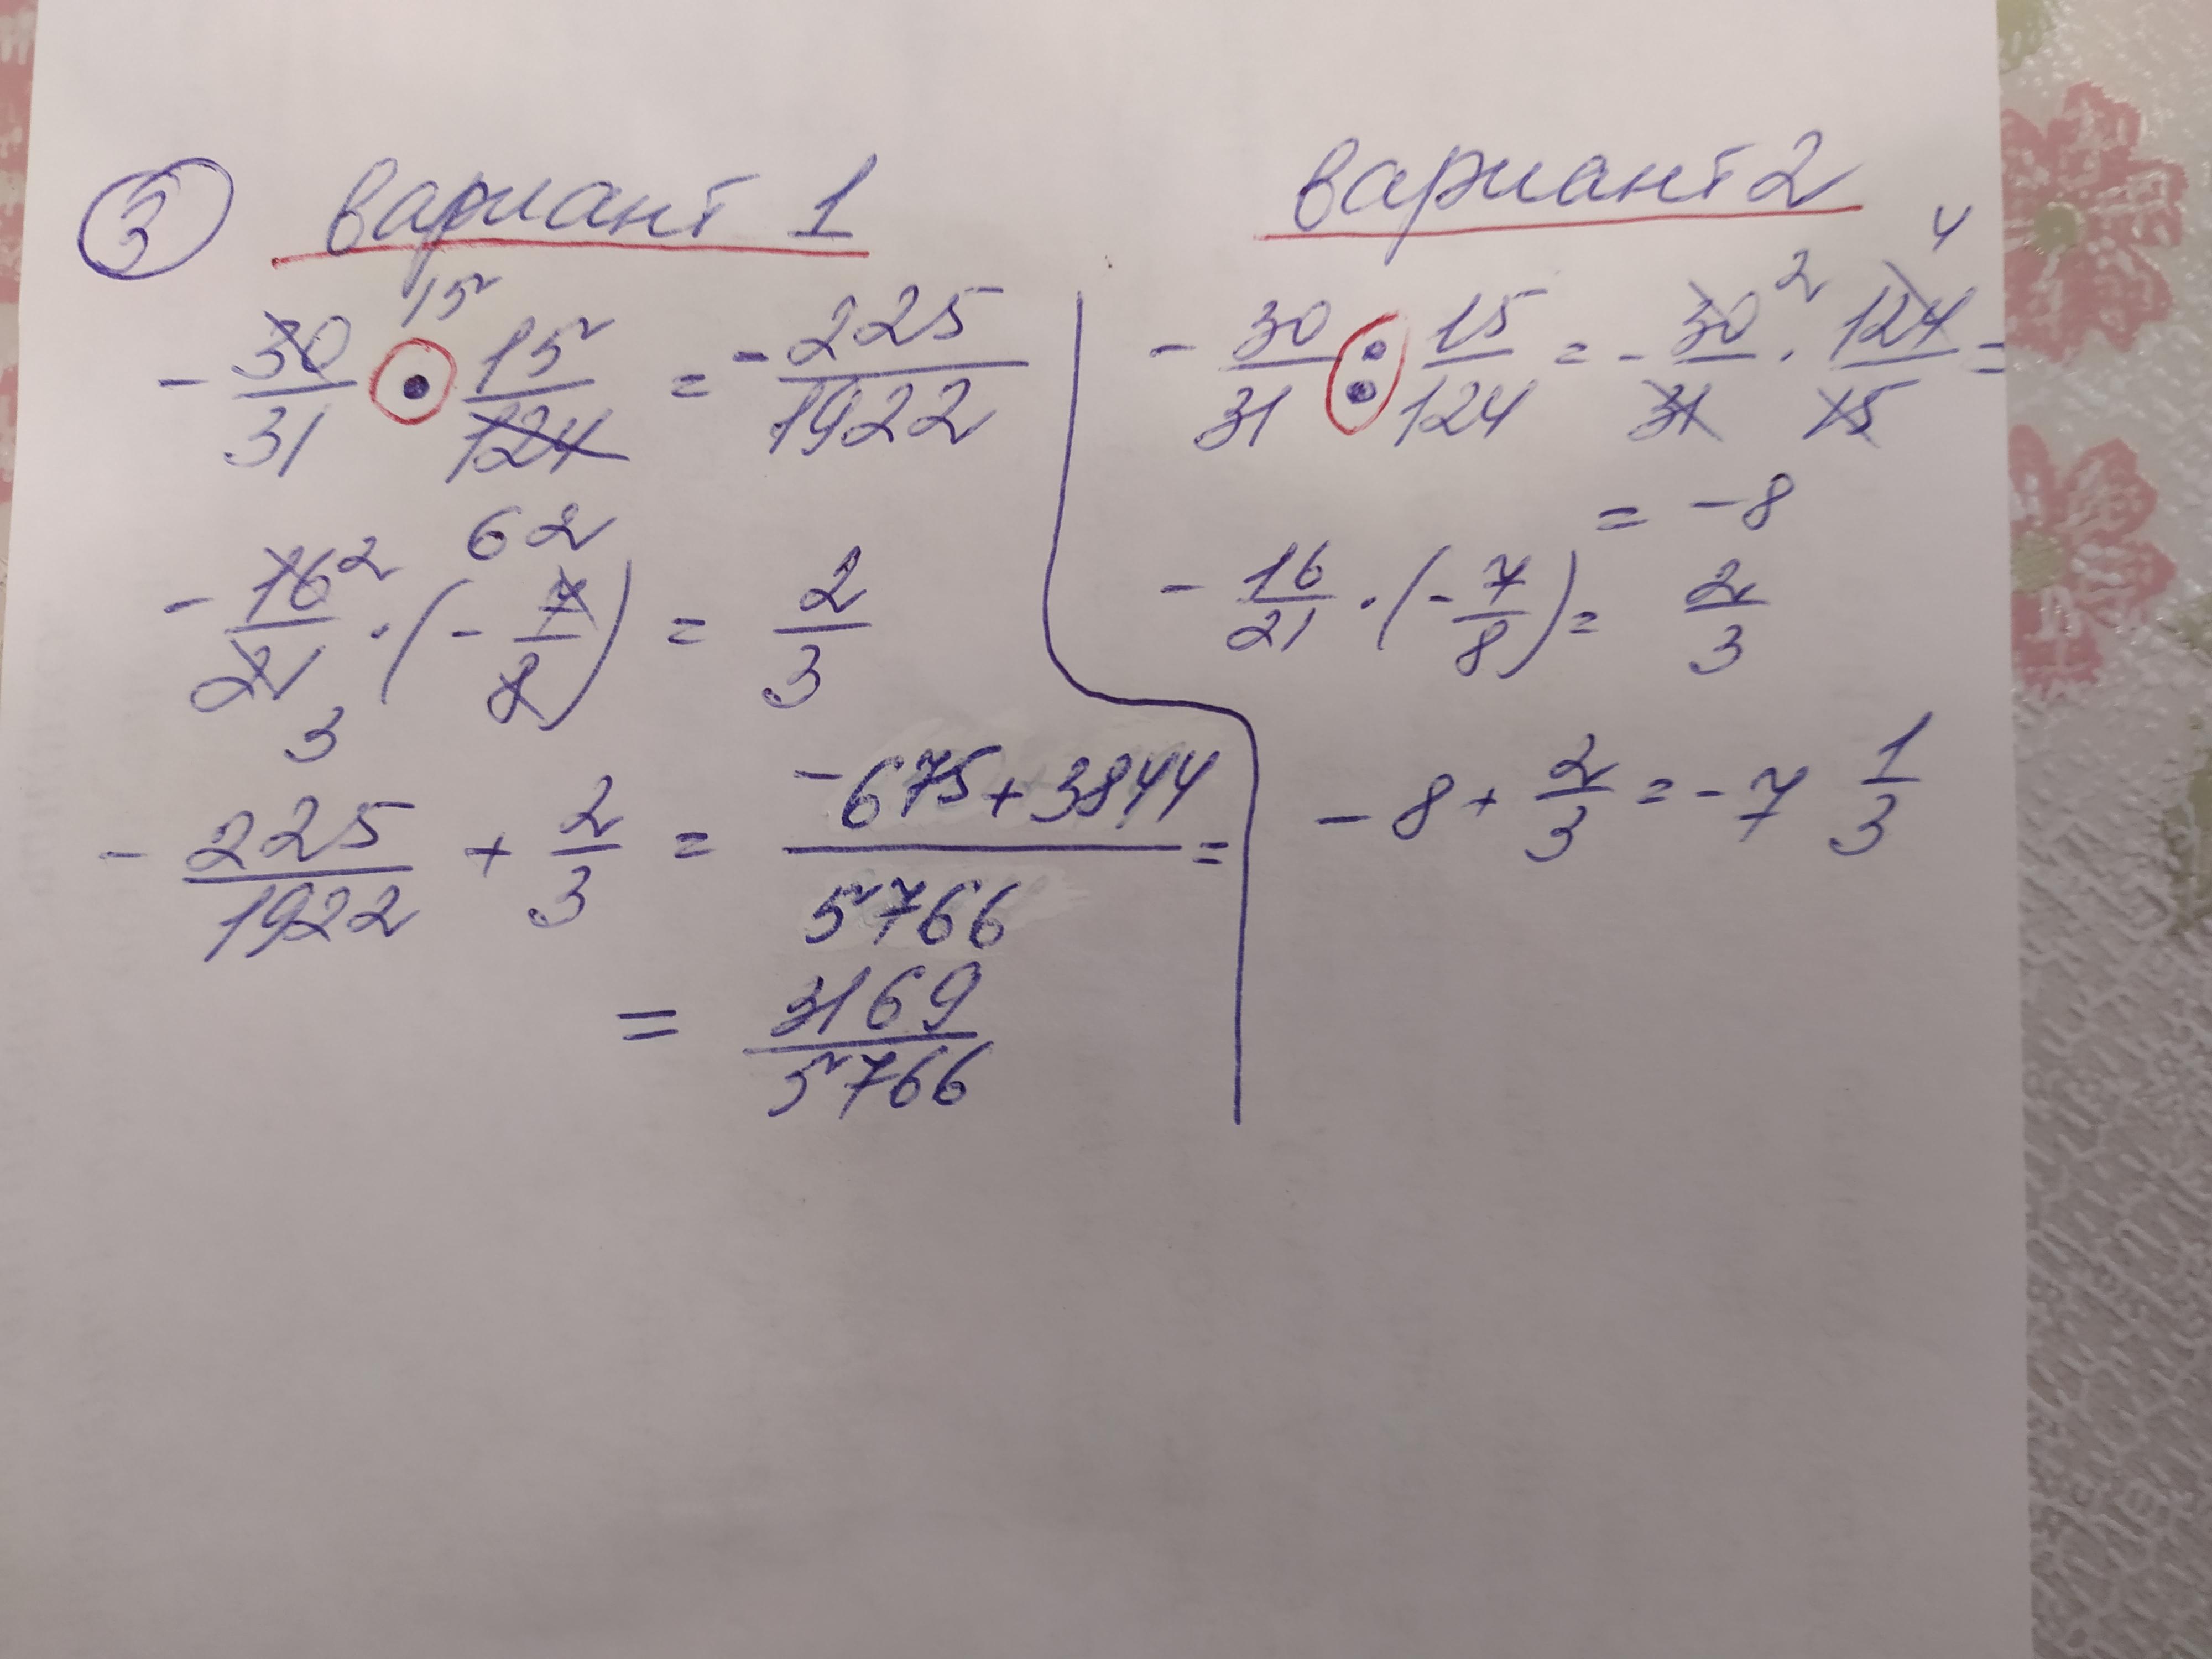 ③ вариант 1
15
- 30/31 · 15/124 = - 225/1922
62
- 16/21 2 3 · (- 7/8) = 2/3
- 225/1922 + 2/3 = -675+3844/5766 =
= 3169/5766
вариант 2
- 30/31 : 15/124 = - 30/31 2 · 124/15 4 =
= -8
- 16/21 · (- 7/8) = 2/3
- 8 + 2/3 = - 7 1/3